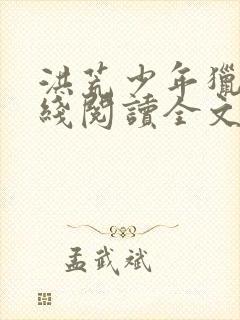 洪荒少年獵
綫閱讀全文
孟武斌